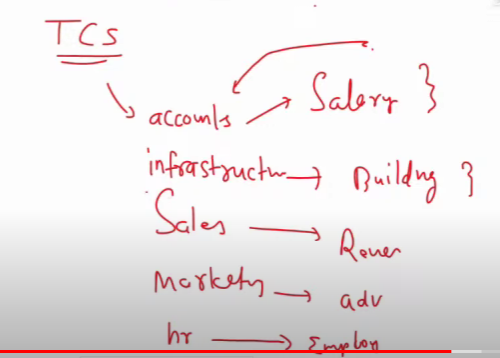 TCS
accounts → Salary }
infrastructu → Buildng }
Sales → Reven
Marketng → adv
hr → Employ